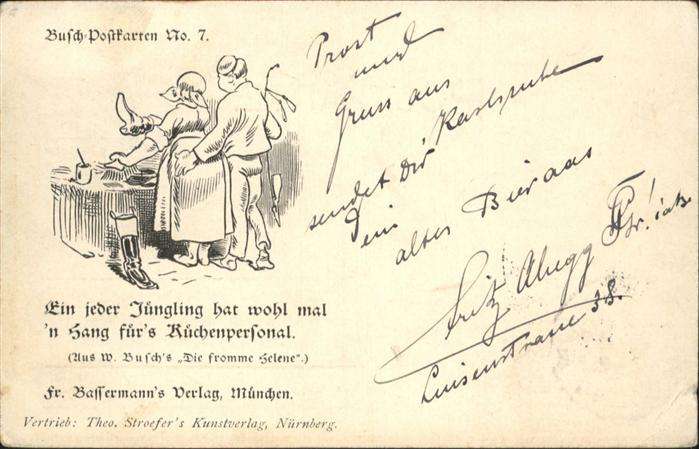 Busch-Postkarten No. 7.
Ein jeder Jüngling hat wohl mal
'n Hang für's Küchenpersonal.
(Aus W. Busch's „Die fromme Helene“.)
Fr. Bassermann's Verlag, München.
Vertrieb: Theo. Stroefer's Kunstverlag, Nürnberg.
Prost
und
Gruss aus
Karlsruhe
sendet Dir
Dein
alter Bieraas
Fritz Abegg
Luisenstrasse 38.